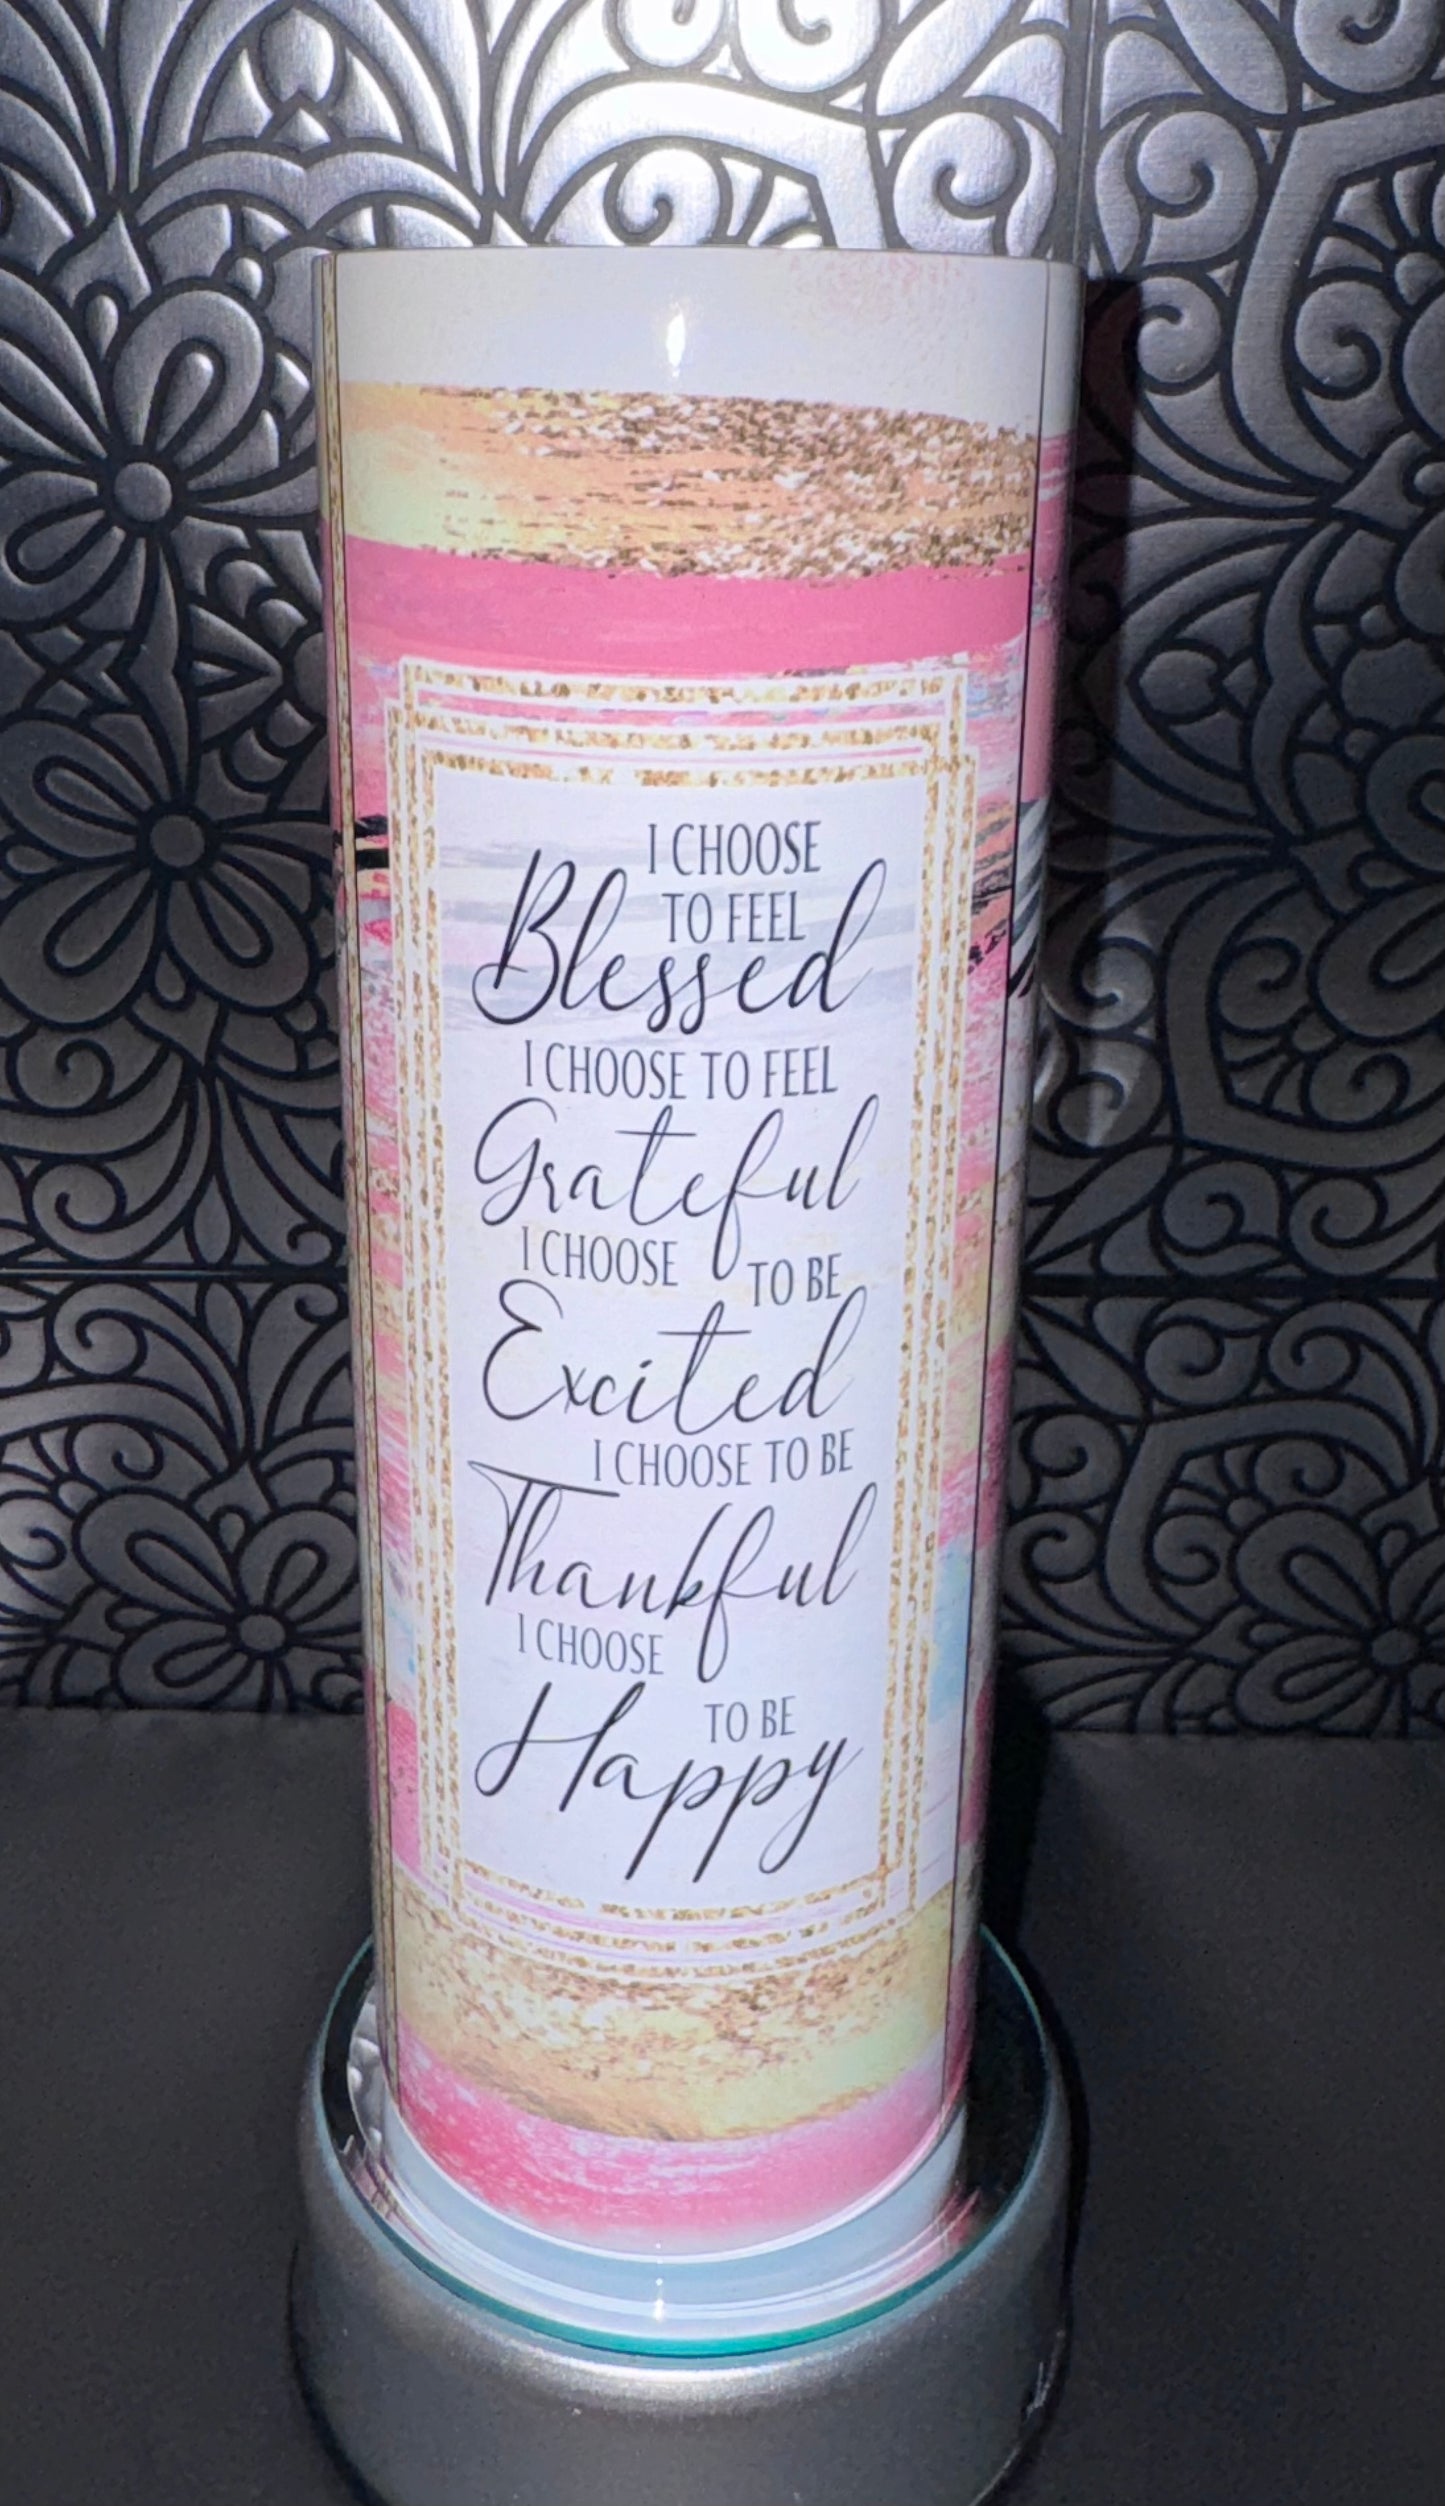 I CHOOSE
TO FEEL
Blessed
I CHOOSE TO FEEL
Grateful
I CHOOSE TO BE
Excited
I CHOOSE TO BE
Thankful
I CHOOSE
TO BE
Happy